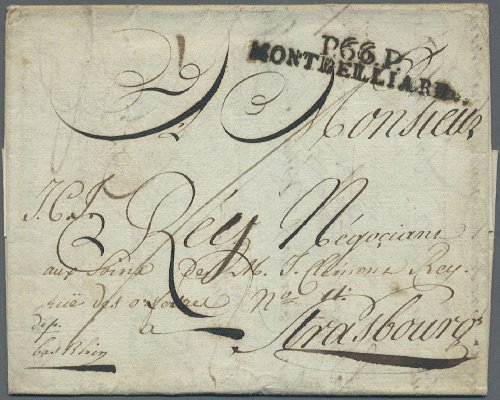 P.66.P.
MONTBELLIARD.
Monsieur
J. C. J. Réy Négociant
aux Soins de M. J. Clemens Rey.
rüe des orfevres
a Strasbourg
dep.
bas Rhin